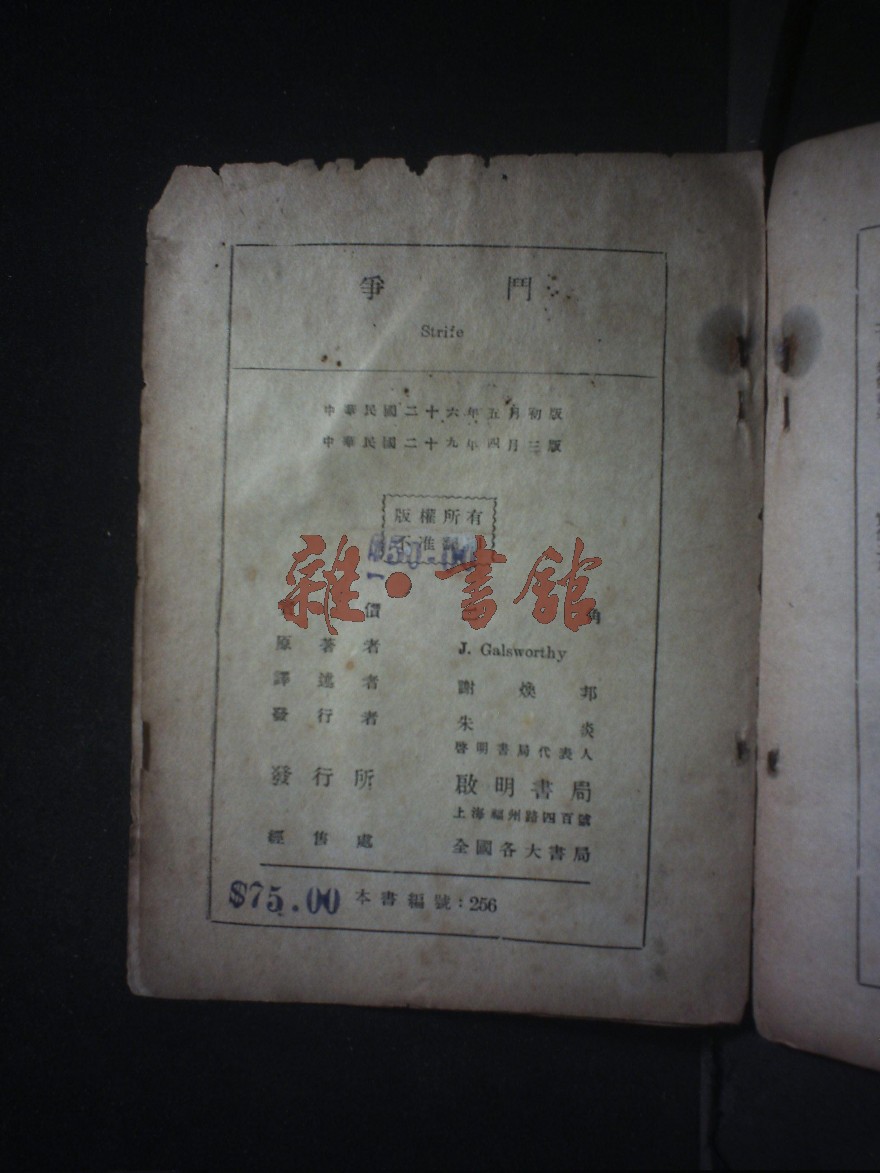 爭鬥
Strife
中華民國二十六年五月初版
中華民國二十九年四月三版
版權所有
不准
雜·書館
價 角
原著者 J. Galsworthy
譯述者 謝煥邦
發行者 朱炎
啓明書局代表人
發行所 啟明書局
上海福州路四百號
經售處 全國各大書局
$75.00 本書編號：256